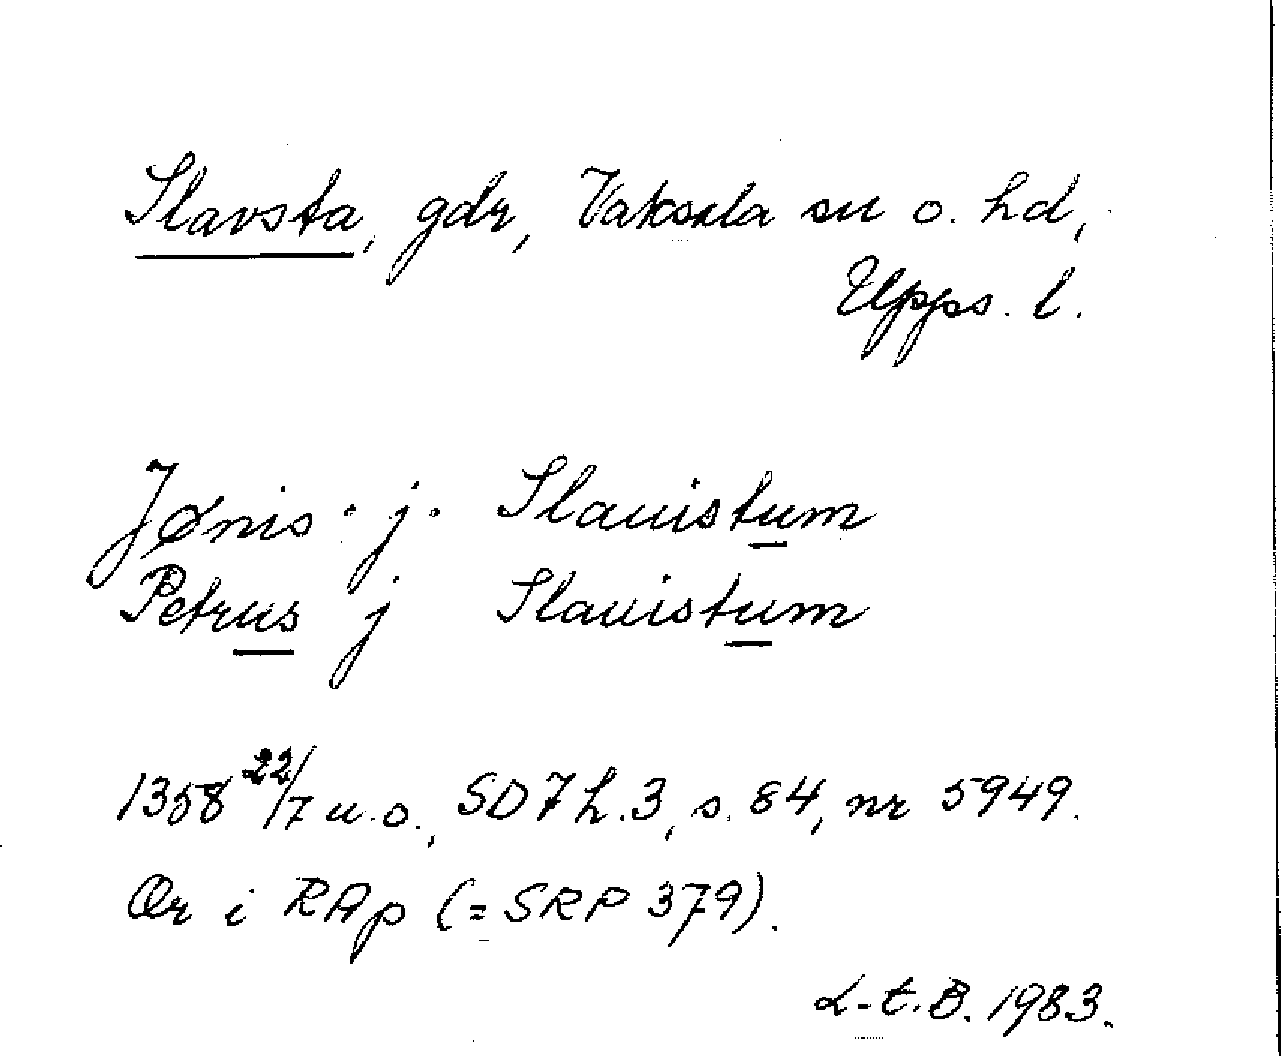 Slavsta, gdr, Vaksala sn o. hd,
Upps. l.
Jønis. j. Slauistum
Petrus j Slauistum
1358 22/7 u.o., SD 7 h.3, s. 84, nr 5949.
Or i RAp (=SRP 379).
L-t.B. 1983.